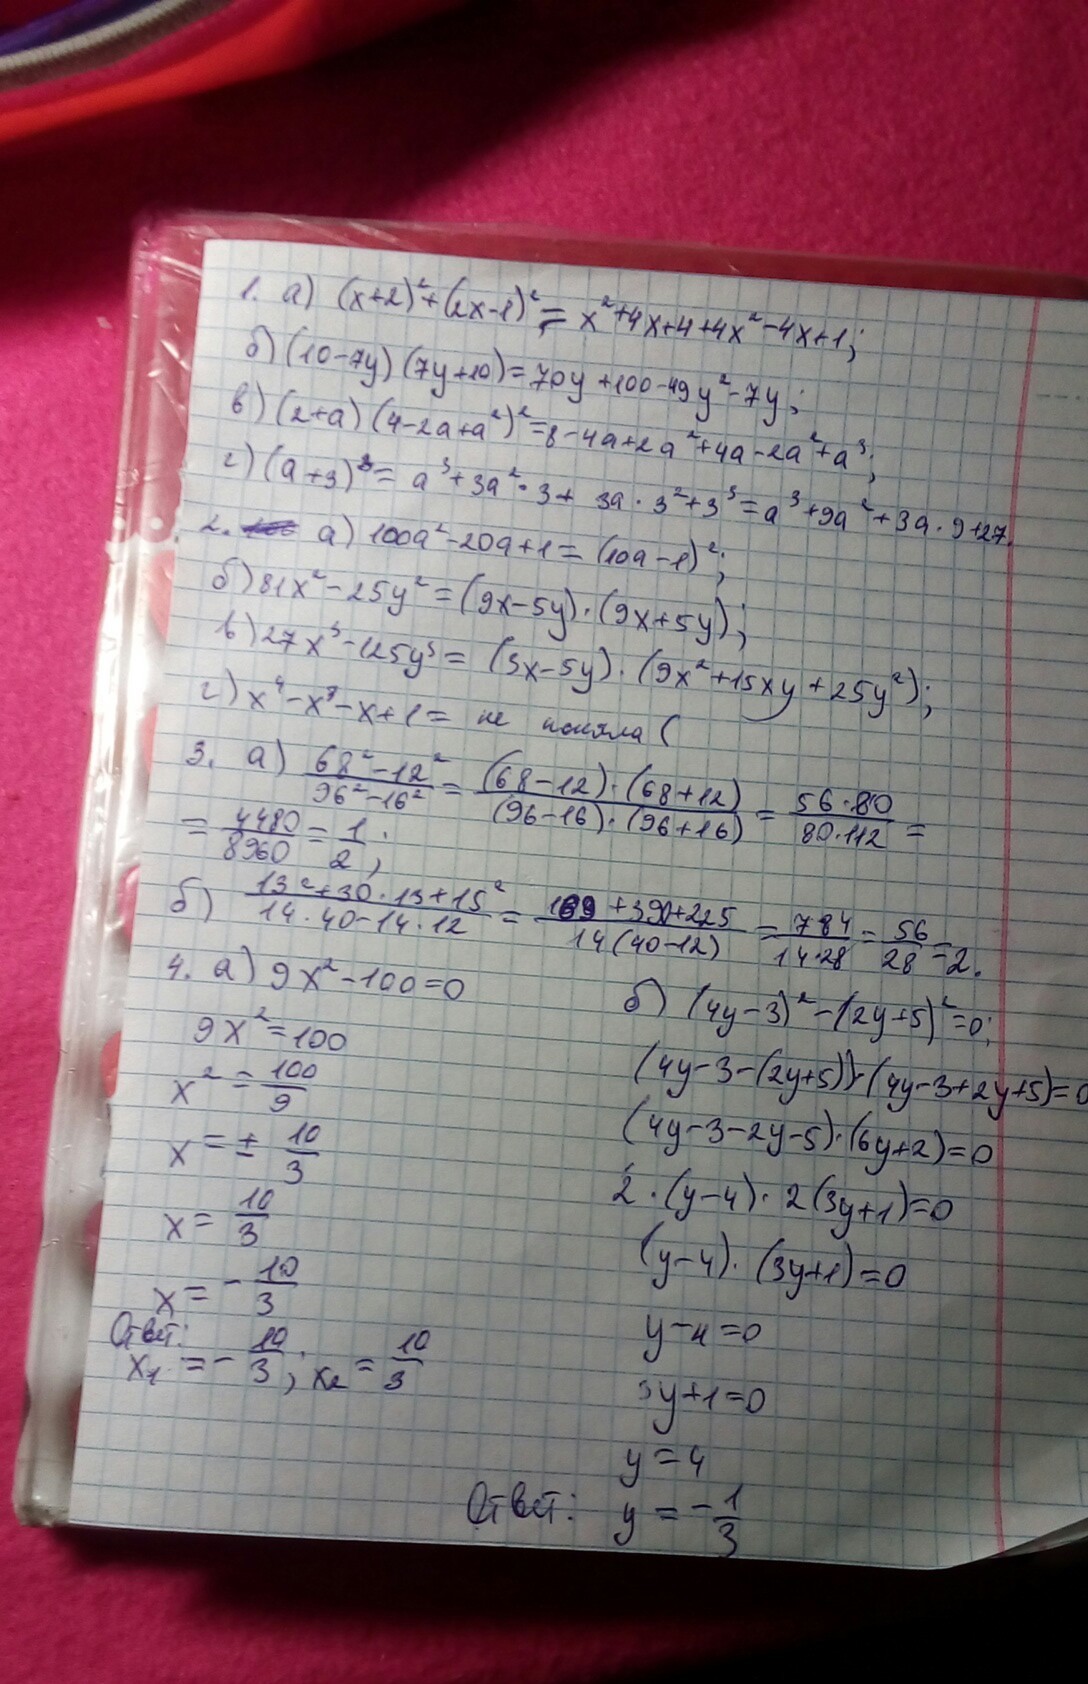 1. а) (x+2)²+(2x-1)² = x²+4x+4+4x²-4x+1;
б) (10-7y)(7y+10)=70y+100-49y²-7y;
в) (2+a)(4-2a+a²)²=8-4a+2a²+4a-2a²+a³;
г) (a+3)³= a³+3a²·3+ 3a·3²+3³=a³+9a²+3a·9+27.
2. а) 100a²-20a+1=(10a-1)²;
б) 81x²-25y²=(9x-5y)·(9x+5y);
в) 27x³-125y³= (3x-5y)·(9x²+15xy+25y²);
г) x⁴-x³-x+1= не поняла (
3. а) (68²-12²)/(96²-16²) = ((68-12)·(68+12))/((96-16)·(96+16)) = (56·80)/(80·112) =
= 4480/8960 = 1/2;
б) (13²+30·13+15²)/(14·40-14·12) = (169+390+225)/(14(40-12)) = 784/(14·28) = 56/28 =2.
4. а) 9x²-100=0
9x²=100
x²=100/9
x=± 10/3
x= 10/3
x= - 10/3
Ответ:
x₁=- 10/3; x₂= 10/3
б) (4y-3)²-(2y+5)²=0;
(4y-3-(2y+5))·(4y-3+2y+5)=0
(4y-3-2y-5)·(6y+2)=0
2·(y-4)·2(3y+1)=0
(y-4)·(3y+1)=0
y-4=0
3y+1=0
y=4
Ответ: y=- 1/3